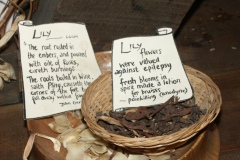 LILY
The root roasted in
the embers, and pounded
with oil of Roses,
cureth burnings.
The roots boiled in Wine
causeth the
corns of the feet to
fall away within
LILY
flowers
were valued
against epilepsy
fresh blooms in
spice made a lotion
for bruises
- painkilling (anodyne)